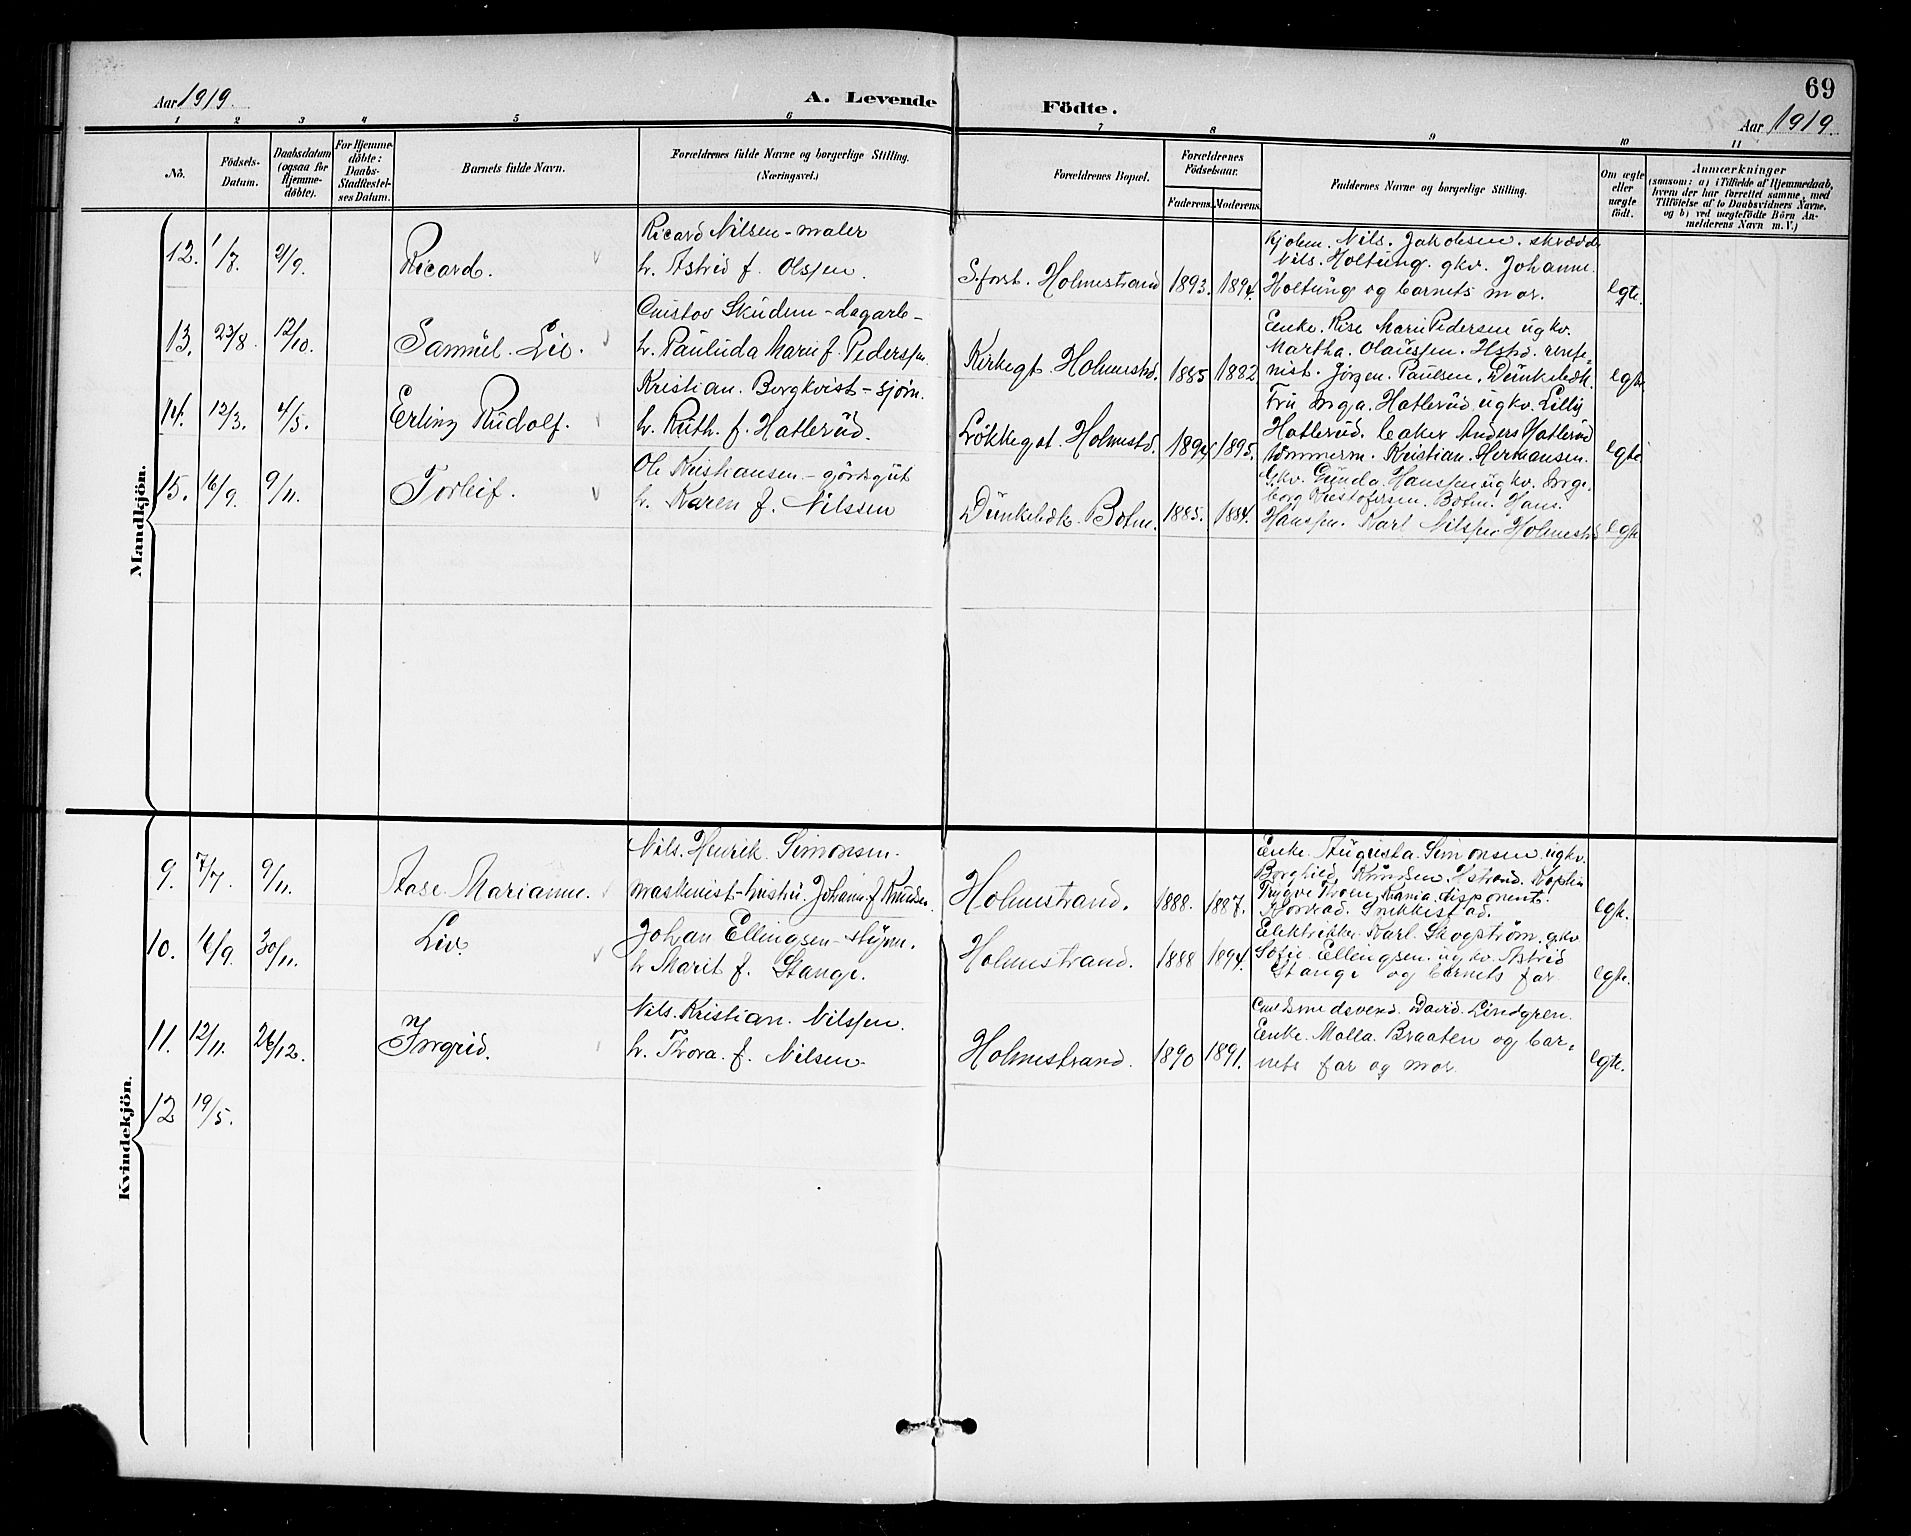 69
Aar 1919.
A. Levende
Födte.
Aar 1919
1 2 3 4 5 6 7 8 9 10 11
No.
Födsels-
Datum.
Daabsdatum
(ogsaa for
Hjemme-
döbte).
For Hjemme-
döbte:
Daabs-
Stadfæstel-
ses Datum.
Barnets fulde Navn.
Forældrenes fulde Navne og borgerlige Stilling.
(Næringsvei.)
Forældrenes Bopæl.
Forældrenes
Födselsaar.
Faderens. Moderens.
Faddernes Navne og borgerlige Stilling.
Om ægte
eller
uægte
födt.
Anmærkninger
(saasom: a) i Tilfælde af Hjemmedaab,
hvem der har forrettet samme, med
Tilföielse af to Daabsvidners Navne,
og b) ved uægtefödte Börn An-
melderens Navn m. V.)
Mandkjön.
12. 1/7. 21/9. Ricard.
Ricard Nilsen - maler
h. Astrid f. Olssen.
Holmestrand 1893. 1894.
Nils. Jakobsen.
Nils. Holtung. gkv. Johanne.
Holtung og barnets mor.
egte.
13. 23/8. 12/10. Samuel. Liv.
Gustov Skudem - dagarb -
h. Pauluda Marie f. Pederssen
Kirkegt. Holmestrd. 1885 1882
Enke. Marie Pedersen ugkv.
Martha. Olaussen. Hstrd.
Jörgen. Paulsen.
egte.
14. 12/3. 4/5. Erling Rudolf.
Kristian. Borgkvist - sjöm.
h. Ruth. f. Hatlerud.
Lökkegt. Holmestd. 1894 1895.
Fru Inga. Hatlerud ugkv. Lilly
Hatlerud. baker Anders Hatlerud
tömmerm. Kristian. Hermansen.
egte
15. 16/9. 9/11. Torleif.
Ole Kristiansen
h. Karen f. Nilssen
Botne. 1885. 1884.
Gkv. Gunda. Hanssen ugkv. Inge-
borg Kristofersen. Botne. Hans.
Hanssen. Karl Nilssen Holmestrd
egte
Kvindekjön.
9. 7/7. 9/11. Aase. Marianne.
Nils. Henrik. Simonsen.
maskinist - hustru. Johanne f. Knudsen.
Holmestrand. 1888. 1887.
Enke. Augusta. Simonsen ugkv.
Borghild Knudsen. Hstrand. Kaptein
Trygve Thoen, disponent.
egte.
10. 16/9. 30/11. Liv.
Johan Ellingsen - styrm.
h Marit f. Stange.
Holmestrand. 1888 1894.
Elektriker. Karl. Skogström. gkv
Sofie. Ellingsen. ugkv. Astrid
Stange og barnets far
egte.
11. 12/11. 26/12. Ingrid.
Nils. Kristian. Nilssen.
h. Thora. f. Nilsen.
Holmestrand. 1890 1891.
David. Lindgren.
Enke. Malla. Braaten og bar-
nets far og mor.
egte.
12 19/5.